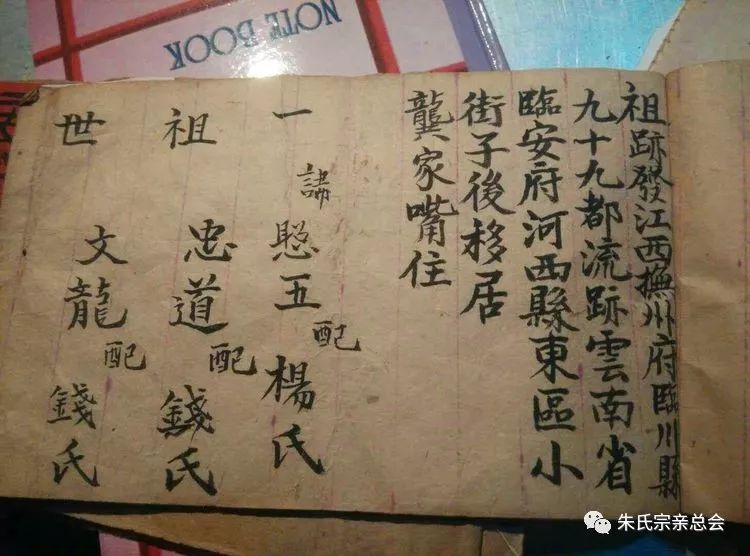 NOTE BOOK
祖跡發江西撫州府臨川縣
九十九都流跡雲南省
臨安府河西縣東區小
街子後移居
龔家嘴住
一 諱 五 配 楊氏
祖 忠道 配 錢氏
世 文龍 配 錢氏
朱氏宗亲总会